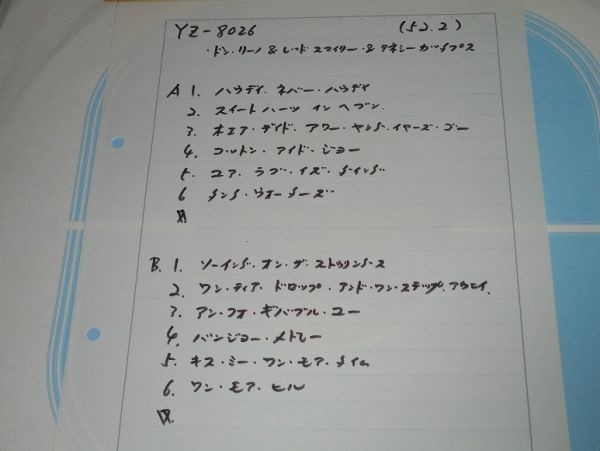 YZ-8026 (52.2)
・ドン・リーノ & レッド スマイリー・& テネシー カップス
A 1. ハウディ. ネバー・ハウディ
2. スイート ハーツ イン ヘブン.
3. ホエア・デイド. アワー・ヤング. イヤーズ・ゴー
4. コットン・アイド・ジョー
5. ユア. ラブ・イズ・ダイング
6 ダンス・ウオーターズ
B. 1. ソーイング. オン・ザ ストゥリングス
2. ワン・ティア ドロップ・アンド・ワン・ステップ. アウエイ.
3. アン・フォ・ギバブル・ユー
4. バンジョー・メドレー
5. キス・ミー・ワン・モア・タイム
6. ワン・モア. ヒル